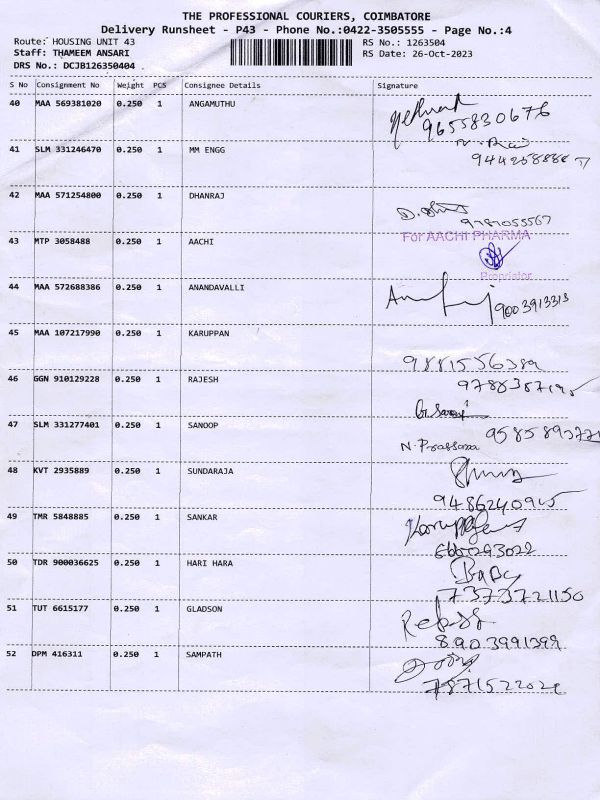 THE PROFESSIONAL COURIERS, COIMBATORE
Delivery Runsheet - P43 - Phone No.:0422-3505555 - Page No.:4
Route: HOUSING UNIT 43 RS No.: 1263504
Staff: THAMEEM ANSARI RS Date: 26-Oct-2023
DRS No.: DCJB126350404
S No Consignment No Weight PCS Consignee Details Signature
40 MAA 569381020 0.250 1 ANGAMUTHU
9655830676
41 SLM 331246470 0.250 1 MM ENGG
42 MAA 571254800 0.250 1 DHANRAJ
9787055567
43 MTP 3058488 0.250 1 AACHI
For AACHI PHARMA
Proprietor
44 MAA 572688386 0.250 1 ANANDAVALLI
9003913313
45 MAA 107217990 0.250 1 KARUPPAN
46 GGN 910129228 0.250 1 RAJESH
47 SLM 331277401 0.250 1 SANOOP
N. Prassana
48 KVT 2935889 0.250 1 SUNDARAJA
49 TMR 5848885 0.250 1 SANKAR
50 TDR 900036625 0.250 1 HARI HARA
7373721150
51 TUT 6615177 0.250 1 GLADSON
8903991399
52 DPM 416311 0.250 1 SAMPATH
7871522022